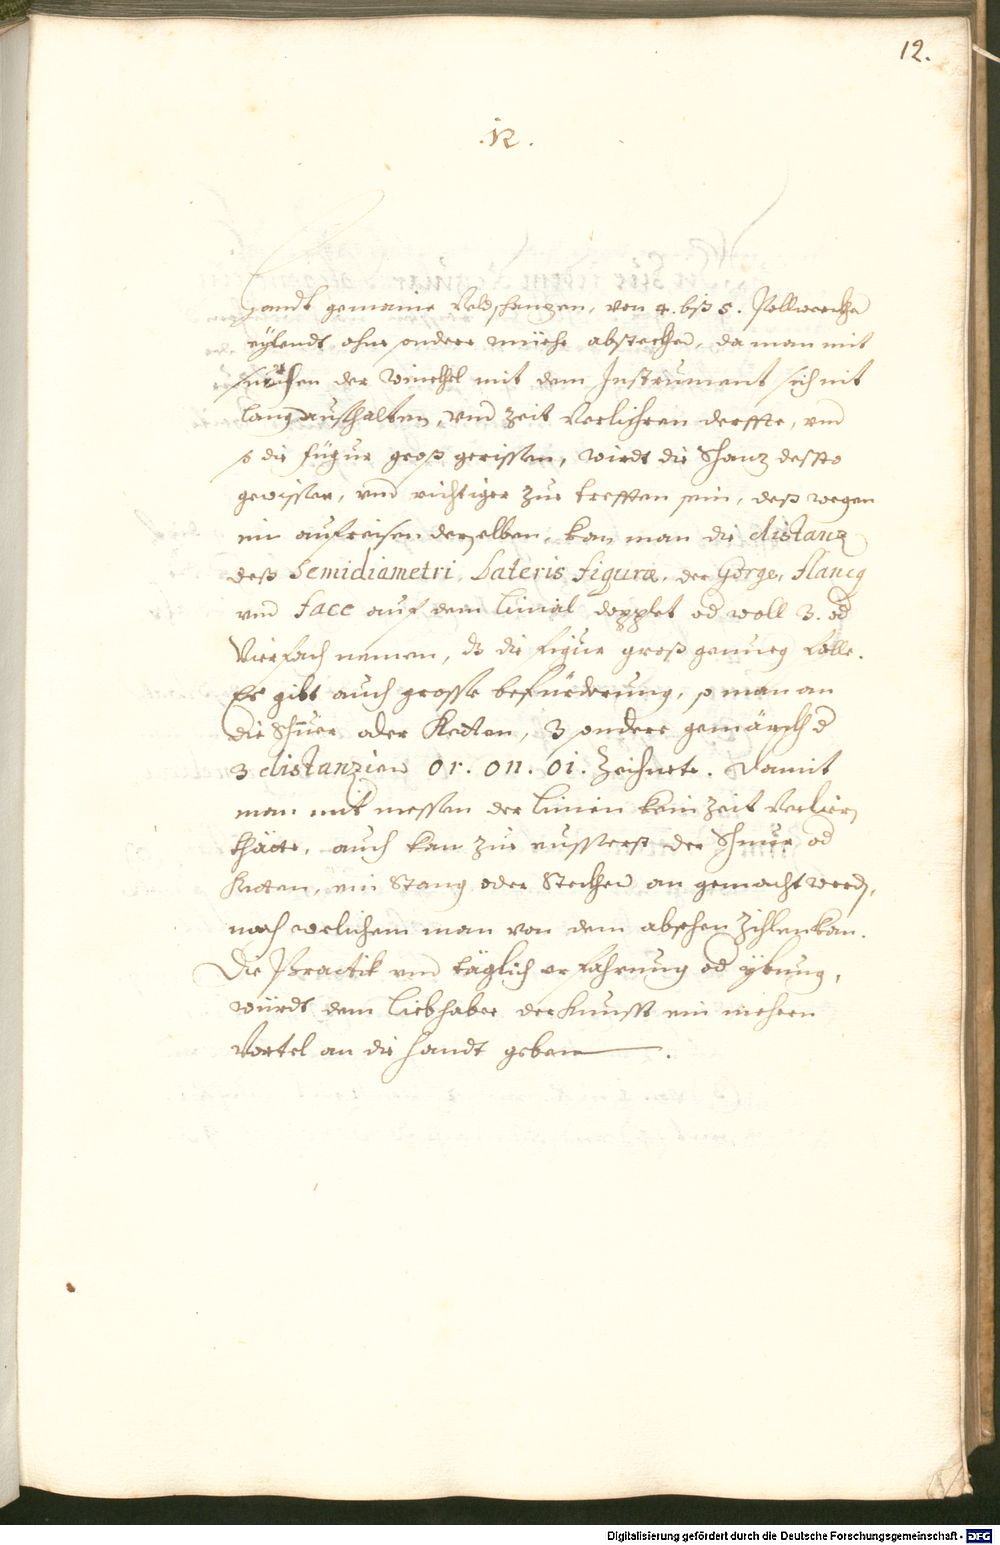 12.
.12.
handt gemaine Veldschanzen, von 4. biß 5. Pollwerckhen
eylendt ohne sondere müehe abstecken, da man mit
suechen der Winckhel mit dem Instrument sich nit
lang aufhalten, vnd Zeit Verliehren derffte, vnd
so die figur groß gerissen, wirdt die Schanz dessto
gewisser, vnd richtiger zue treffen sein, deß wegen
im aufreisen derselben, kan man die distanz
deß Semidiametri, Lateris figuræ, der Gorge, flancq
vnd face auf dem Linial dopplet od woll 3. od
Vierfach nemen, dz die figur groß genueg falle.
Es gibt auch grosse befürderung, so man an
die Schnuer oder Ketten, 3 sondere gemärckh
3 distanzien or. on. oi. Zeichnete. Damit
man mit messen der Linien kein Zeit Verlier
thäte, auch kan zue eusserst der Schnur od
Ketten, ein Stang oder Steckhen an gemacht werd,
nach welichem man von dem absehen Zihlen kan.
Die Practik vnd täglich erfahrnung od yebung,
würdt dem Liebhaber der Kunst ein mehrern
Vortel an die handt geben.
Digitalisierung gefördert durch die Deutsche Forschungsgemeinschaft - DFG